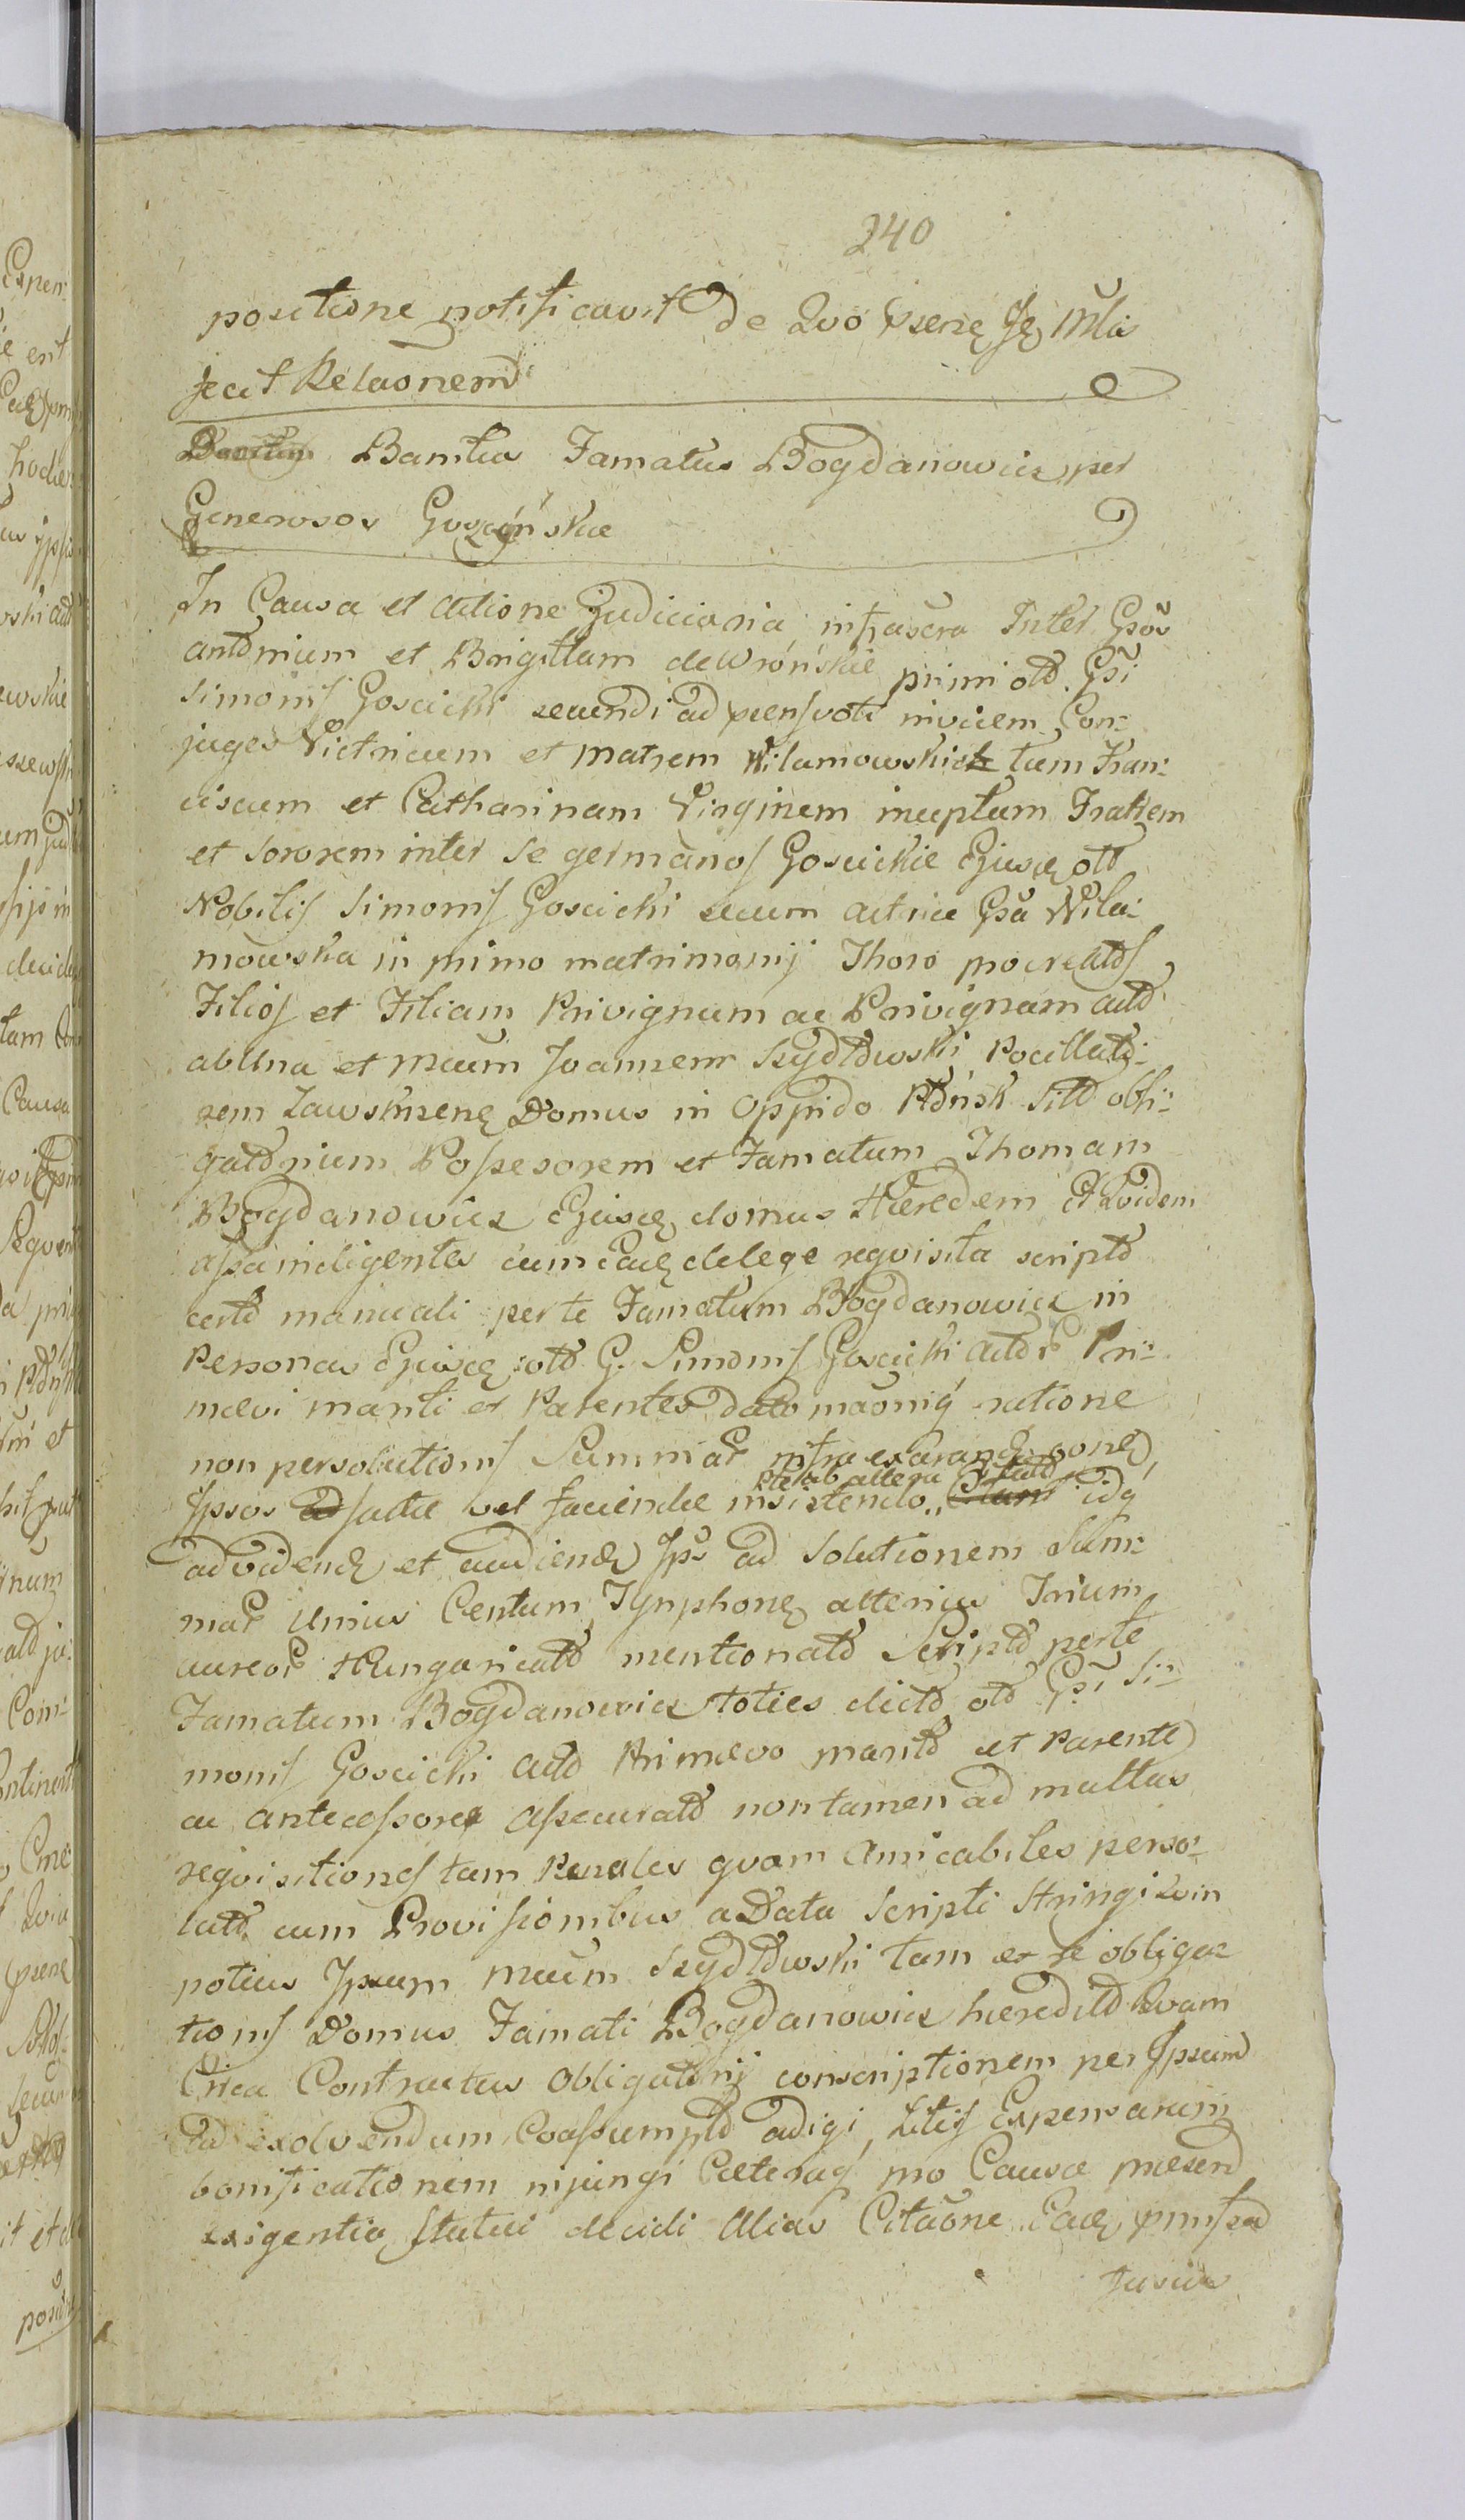 240
positione notificavit de Quo psene Je Mlis
fecit Relaonem
Banitus Famatus Bogdanowicz per
Generosos Goszczynskie
In Causa et actione Judiciaria infrascra Inter Gsos
antonium et Brigittam de Wrónskie primi oto Gsi
Simonis Goscicki secundi ad praens voti invicem Con:
juges Victricum et Matrem Wilamowskich tum Fran:
ciscum et Catharinam Virginem ineptam Fratrem
et Sororem inter se germanos Goscickie Ejusd oto
Nobilis Simonis Goscicki secum actrice Gsa Wila:
mowska in primo matrimonij Thoro procreatos
Filios et Filiam Privignum ac Privignam acto
ab Una et Mcum Joannem Szydłowski Pocillato:
rem Zawskrzene Domus in Oppido Płońsk Sito obli:
gatorium Possesorem et Famatum Thomam
Bogdanowicz Ejusd domus Haeredem Et Quidem
assa indigentes cum Ead delege reqvisita scripto
certo manuali per te Famatum Bogdanowicz in
Personas Ejusd oto G. Simonis Goscicki Actor Pri:
maevi mariti et Parentes dato maoniq ratione
non persolutionis Summar infra exarand gone
Ipsos factae vel faciendae insistendo ab altera idq
ad vidend et audiend Ips ad Solutionem Sum:
mar Unius Centum Tynphone alterius Trium
aureor Hungaricato mentionato Scripto per te
Famatum Bogdanowicz toties dicto oto Gsi Si:
monis Goscicki Acto Primaevo marito et Parente
ac antecessore assecurato non tamen ad multas
reqvisitiones tam Penales qvam amicabiles perso:
luto cum Provisionibus a Data Scripti Stringi Qvin
potius Ipsum Mcum Szydłowski tam ex re obliga
tionis Domus Famati Bogdanowicz haeredito Qvam
Circa Contractus obligatorij conscriptionem per Ipsum
ad exolvendum Coassumpto adigi, Litis Expensarum
bonificationem injungi Caeteraq pro Causae praesend
exigentia Statui decidi Alias Citaone Ead
Fusius